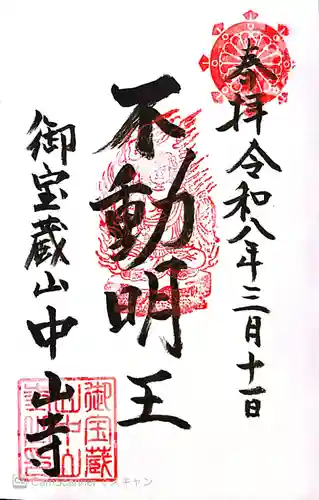 奉拝 令和八年三月十一日
不動明王
御宝蔵山中山寺
御宝蔵
CamScannerでスキャン